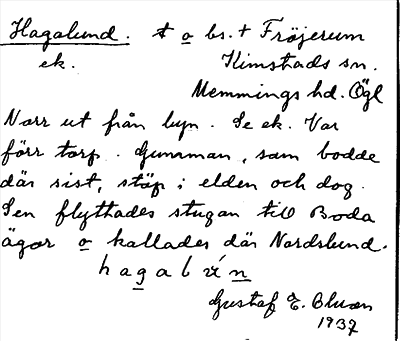 Hagalund. t o bs. t Fröjerum
ek. Kimstads sn.
Memmings hd. Ögl
Norr ut från byn. Se ek. Var
förr torp. Gumman, som bodde
där sist, stöp i elden och dog.
Sen flyttades stugan till Boda
ägor o kallades där Nordslund.
Gustaf E. Bluon
1937